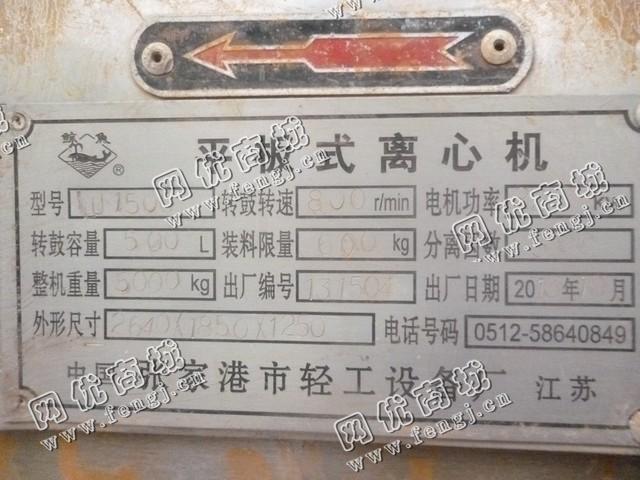 鲸八鱼 ®
平板式离心机
型号 150 转鼓转速 800 r/min 电机功率 kw
转鼓容量 500 L 装料限量 600 kg 分离因数
整机重量 3000 kg 出厂编号 131504 出厂日期 20 年 月
外形尺寸 2640X1850X1250 电话号码 0512-58640849
中国 张家港市轻工设备厂 江苏
网优商城
www.fengj.cn
网优商城
www.fengj.cn
网优商城
www.fengj.cn
网优商城
www.fengj.cn